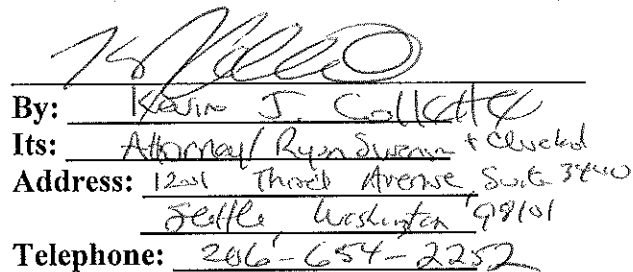 By: Kevin J. Collette
Its: Attorney/ Ryan Swanson + Cleveland
Address: 1201 Third Avenue, Suite 3400
Seattle Washington, 98101
Telephone: 206-654-2252